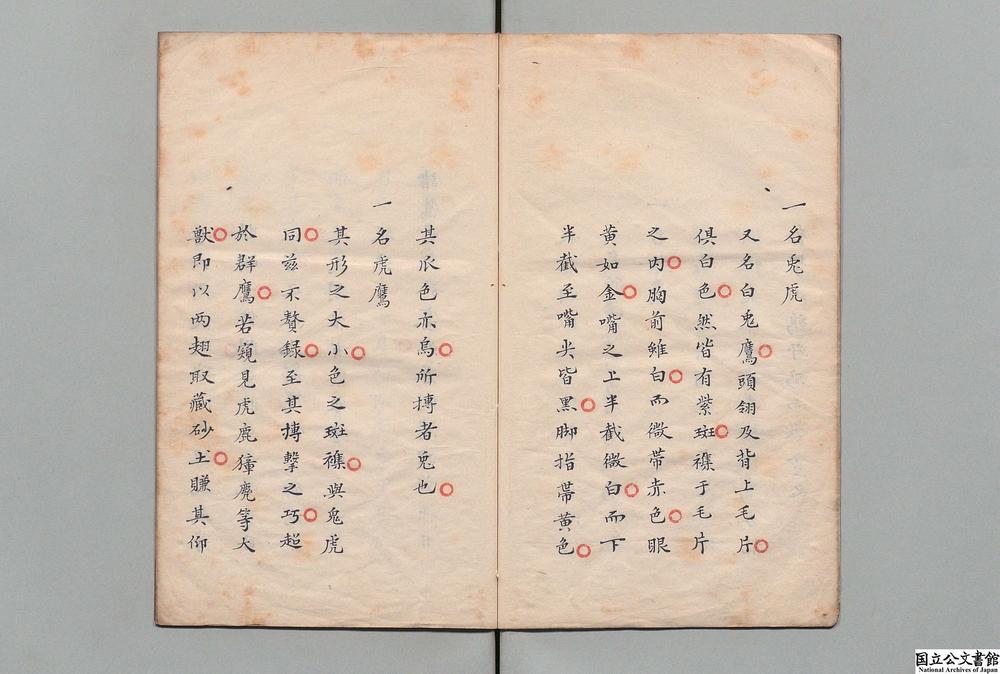 一名兎虎
又名白兎鷹。頭翎及背上毛片。
俱白色。然皆有紫斑。襍于毛片
之内。胸前雖白。而微帯赤色。眼
黄如金。嘴之上半截微白。而下
半截至嘴尖皆黒。脚指帯黄色。
其爪色亦烏。所摶者兎也。
一名虎鷹
其形之大小。色之斑襍。與兎虎
同。兹不贅録。至其摶撃之巧。超
於群鷹。若窺見虎鹿獐麂等大
獣。即以两翅取藏砂土。賺其仰
国立公文書館
National Archives of Japan